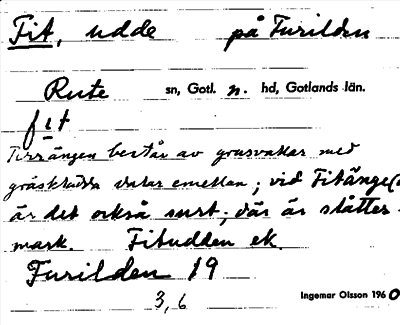 Fit, udde på Furilden
Rute sn, Gotl. n. hd, Gotlands län.
fit
Terrängen består av grusvallar med
gräsklädda dalar emellan; vid Fitänge(
är det också surt; där är slåtter-
mark. Fitudden ek.
Furilden 19
3,6 Ingemar Olsson 1960